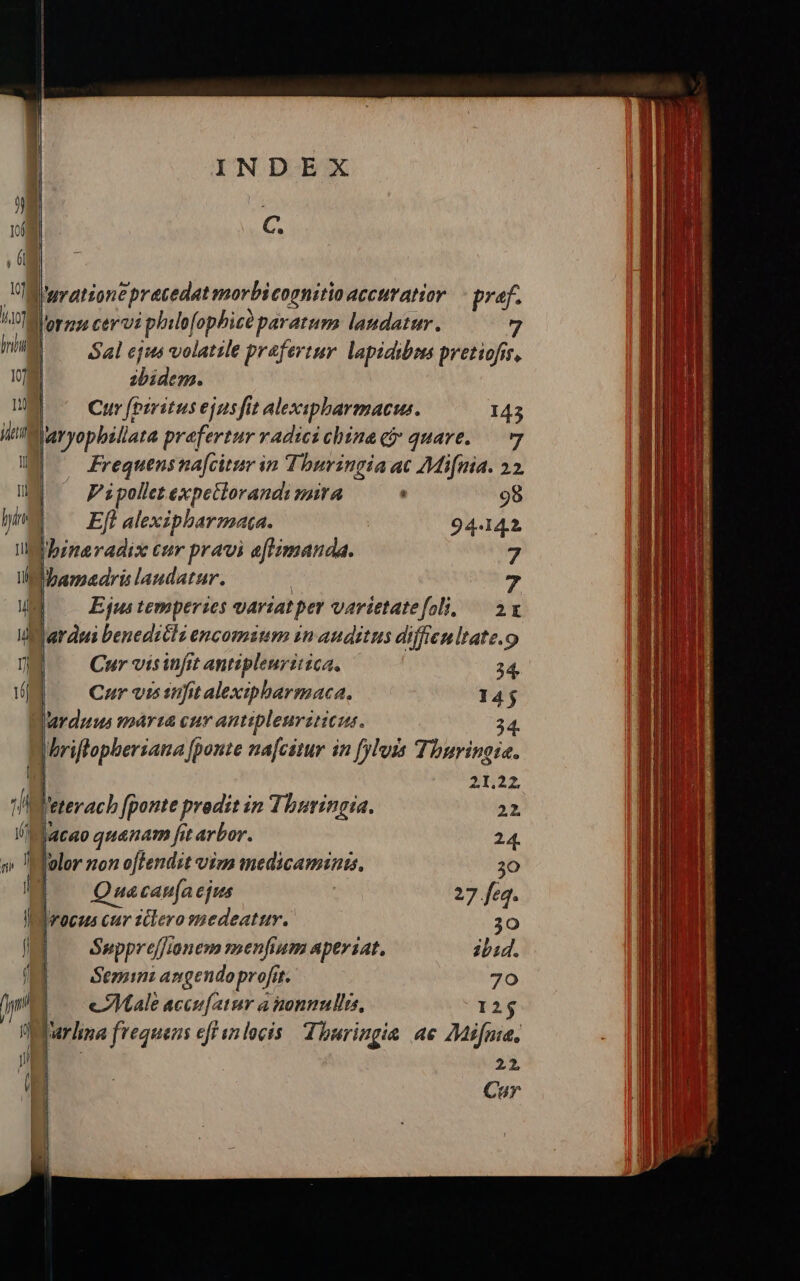 INDEX
C.
urationẽ præcedat morbi cognitio accuratior præf.
ornu cervi philoſophicè paratum laudatur. 7
Sal ejus volatile præfertur lapidibus pretioſis,
ibidem.
Cur ſpiritus ejus ſit alexipharmacus. 143
aryophillata præfertur radici chinæ & quare. 7
Frequens naſcitur in Thuringia ac Miſnia. 22
Vi pollet expectorandi mira 98
Eſt alexipharmaca. 94.142
hinæ radix cur pravi æſtimanda. 7
hamædris laudatur. 7
Ejus temperies variat per varietate ſoli, 21
ardui benedicti encomium in auditus difficultate. 9
Cur vis inſit antipleuritica, 34
Cur vis inſit alexipharmaca. 145
arduus mariæ cur antipleuriticus. 34
hriſtopheriana ſponte naſcitur in ſylvis Thuringiæ.
21,22
eterach ſponte prodit in Thuringia. 22
acao quænam ſit arbor. 24
olor non oſtendit vim medicaminis, 30
Quæ cauſa ejus 27 ſeq.
rocus cur ictero medeatur. 30
Suppreſſionem menſium aperiat, ibid.
Semini augendo proſit. 70
Male accuſatur à nonnullis, 125
arlina frequens eſt in locis Thuringiæ ac Miſniæ,
22
Cur